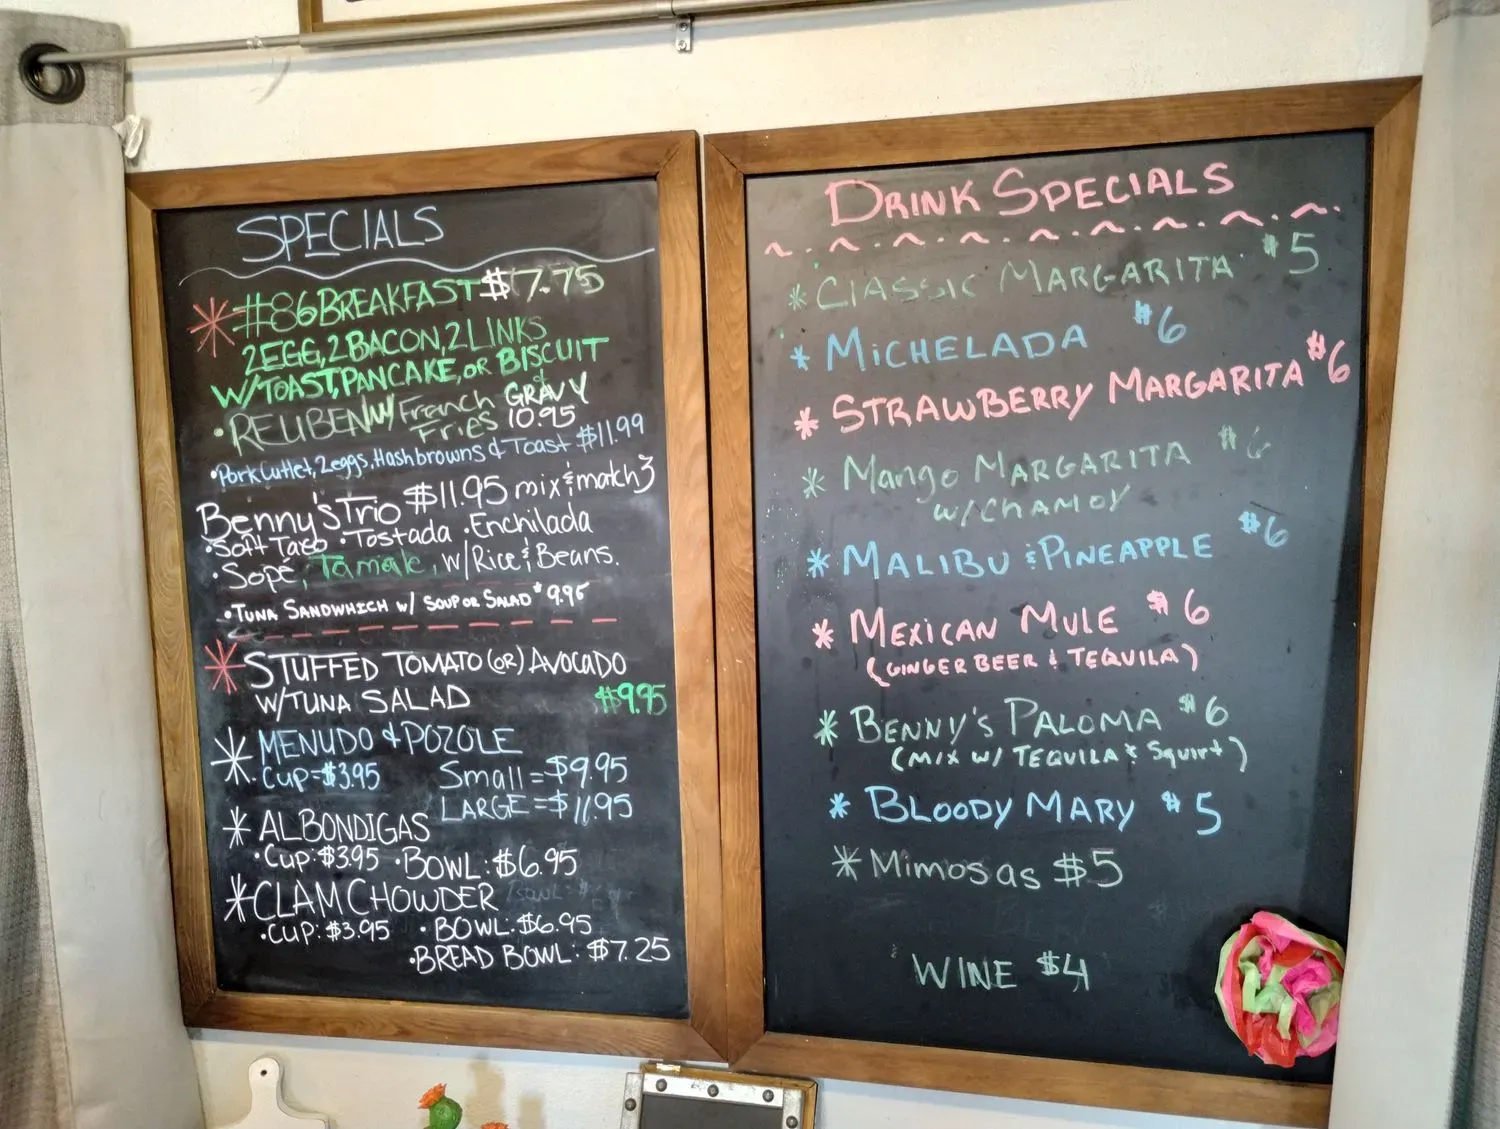 SPECIALS
#86 BREAKFAST $7.75
2 EGG, 2 BACON, 2 LINKS
W/TOAST, PANCAKE, OR BISCUIT
& GRAVY
• REUBEN W/ French Fries 10.95
• Pork Cutlet, 2 eggs, Hashbrowns & Toast $11.99
Benny's Trio $11.95 mix & match 3
• Soft Taco • Tostada • Enchilada
• Sopé, Tamale, w/Rice & Beans.
• TUNA SANDWHICH W/ SOUP OR SALAD $9.95
STUFFED TOMATO (OR) AVOCADO
W/TUNA SALAD $9.95
MENUDO & POZOLE
Cup=$3.95 Small=$9.95
LARGE=$11.95
ALBONDIGAS
• Cup: $3.95 • BOWL: $6.95
CLAM CHOWDER
• CUP: $3.95 • BOWL: $6.95
• BREAD BOWL: $7.25
DRINK SPECIALS
* CLASSIC MARGARITA $5
* MICHELADA $6
* STRAWBERRY MARGARITA $6
* Mango MARGARITA $6
W/CHAMOY
* MALIBU & PINEAPPLE $6
* MEXICAN MULE $6
(GINGER BEER & TEQUILA)
* BENNY'S PALOMA $6
(MIX W/ TEQUILA & Squirt)
* BLOODY MARY $5
* Mimosas $5
WINE $4